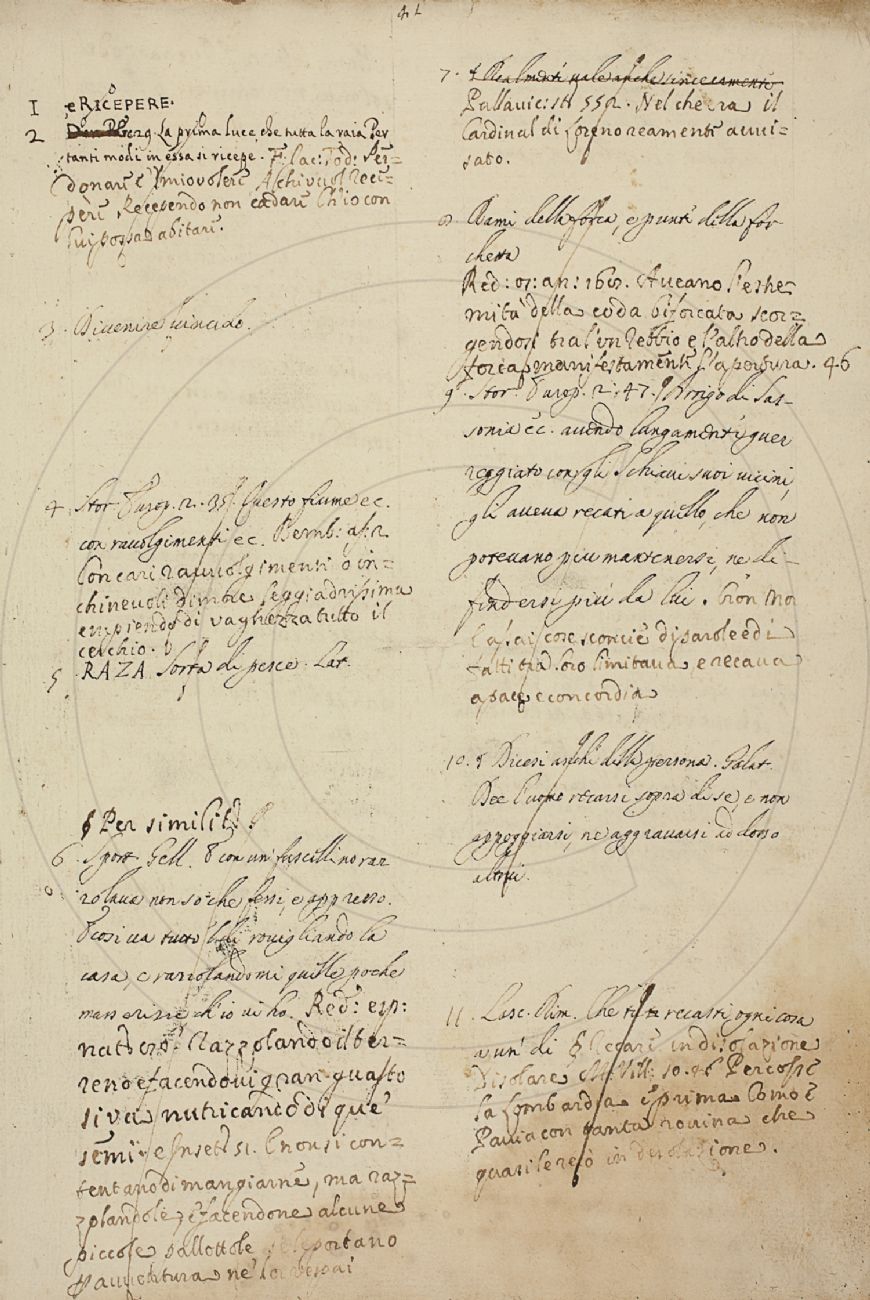 41
1 e RICEPERE.
2 La prima luce, che tutta la raia Per
tanti modi in essa si ricepe. F. Iac: Tod: Per=
donare e
pere, Recependo non cadare Ch'io con
lui possa abitare.
3. Divenire
4. Stor. Europ. 2. 35. Questo fiume ec.
con ravolgimenti ec. Bemb: as: 2.
Con cari ravvolgimenti o in=
chinevoli d'imble leggiadrissima
empiendo di vaghezza tutto il
cerchio.
5. RAZA Sorta di pesce. Lat.
§ Per similit.
6. Sport. Gell. E con un fuscellino raz
zolava non so che fessi, e appresso.
E così va tutto 'l dì rovigliando la
casa, e razzolandomi quelle poche
masserizie ch'io vi ho. Red: esp:
nat: Razzolando il ter=
reno e facendovi gran guasto
si va nutricando di que'
semi. e Insett: 51. E non si con=
tentano di mangiarne, ma raz=
zolandole, e facendone alcune
piccole pallottole se le portano
7. § Realmente vale anche sinceramente
Pallavic: st: 552. Nel che era il
Cardinal di Loreno reamente avvi=
sato.
8 Rami della forca, e punte della for
chetta
Red: os: an: 160. Aveano l'estre
mità della coda biforcata scor=
gendosi tra l'un rebbio e l'altro della
forca manifestamente l'apertura. 46
9. Stor. Europ. 2. 47. Arrigo di Sas-
sonia ec. avendo lungamente guer
reggiato con gli Schiavi suoi vicini,
gli aveva recati a quello, che non
potevano più mantenersi, ne di-
fendersi più da lui. Gron Mor
Assai cose sconcie di parole e di
fatti tra loro limitava, e recava
a pace e concordia
10. § Dicesi anche della persona. Galat.
Dee l'uomo recarsi sopra di se, e non
appoggiarsi, ne aggravarsi addosso
altrui.
11. Lasc. Rim. Che ti ti recasti ogni cosa
a un' di § Recare in disolazione
Disolare M: Vill: 10. 46 Percosse
la Lombardia e prima Como e
Pavia con tanta rovina che
quasi le recò in desolazione.